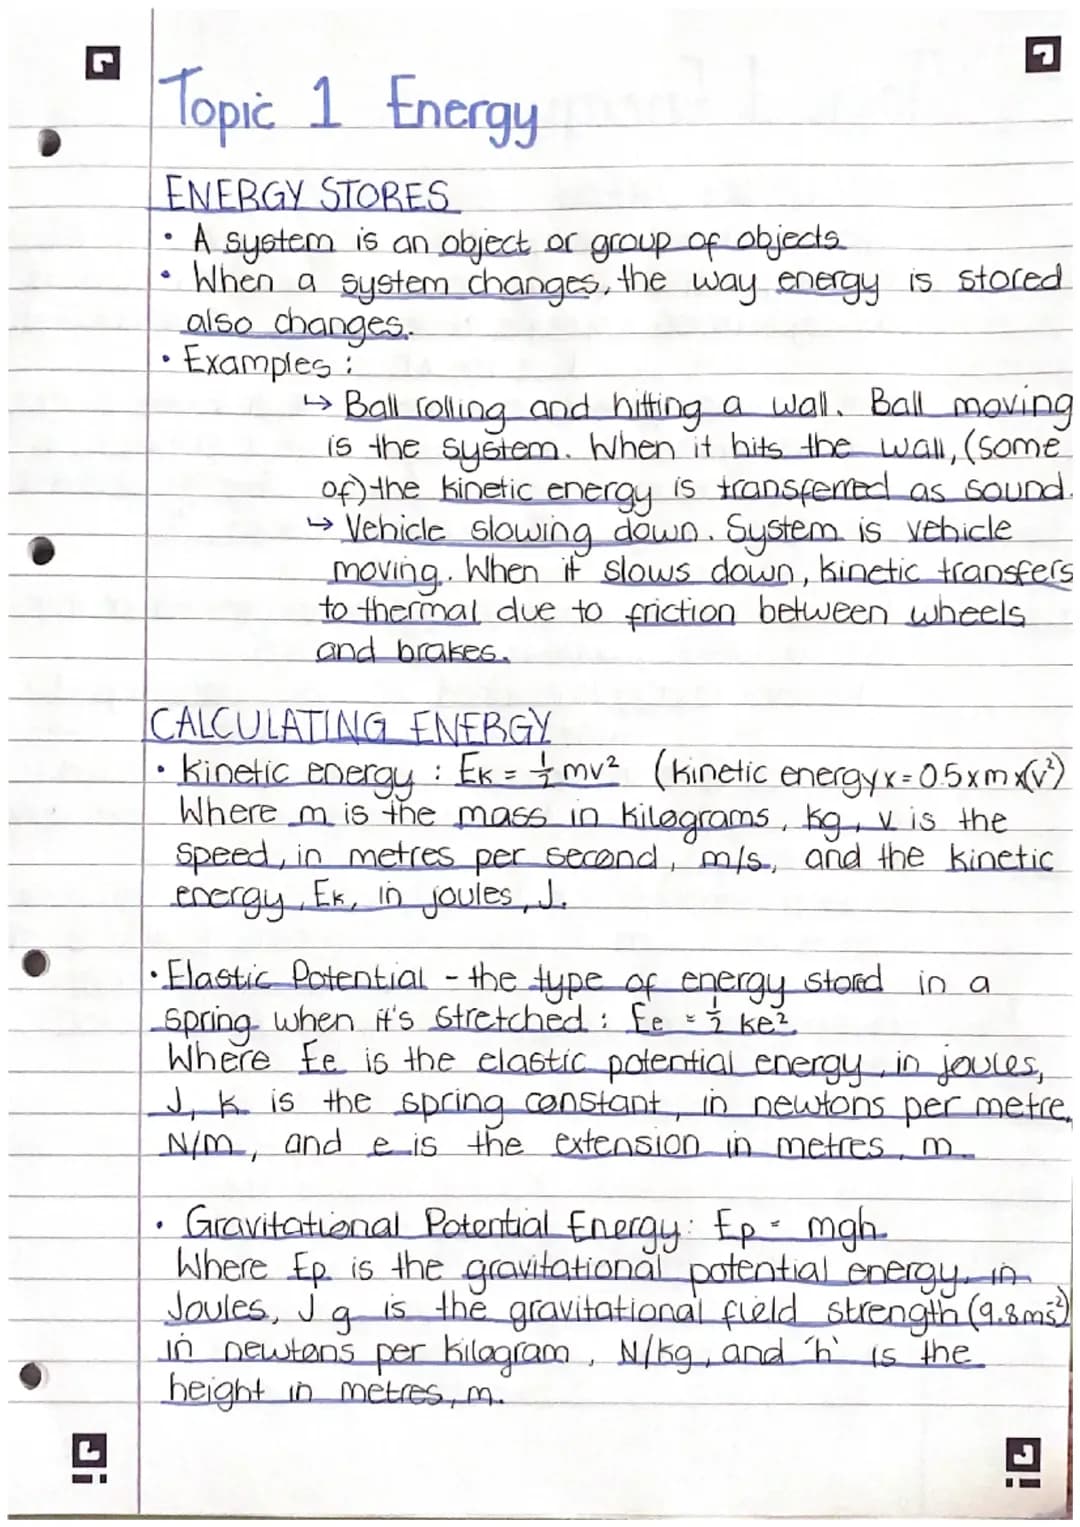 Topic 1 Energy
ENERGY STORES
• A system is an object or group of objects
• When a system changes, the way energy is stored
also changes.
• Examples :
↳ Ball rolling and hitting a wall. Ball moving
is the system. When it hits the wall, (some
of) the kinetic energy is transferred as sound.
↳ Vehicle slowing down. System is vehicle
moving. When it slows down, kinetic transfers
to thermal due to friction between wheels
and brakes.
CALCULATING ENERGY
• Kinetic energy : Eᴋ = ½ mv² (kinetic energy x = 0.5 x m x (v²)
Where m is the mass in kilograms, kg, v is the
speed, in metres per second, m/s, and the kinetic
energy, Eᴋ, in joules, J.
• Elastic Potential - the type of energy stord in a
spring when it's stretched : Ee = ½ ke²
Where Ee is the elastic potential energy, in joules,
J, k is the spring constant, in newtons per metre,
N/m, and e is the extension in metres, m.
• Gravitational Potential Energy: Ep = mgh
Where Ep is the gravitational potential energy, in
Joules, J g is the gravitational field strength (9.8ms⁻²)
in newtons per kilogram, N/kg, and 'h' is the
height in metres, m.